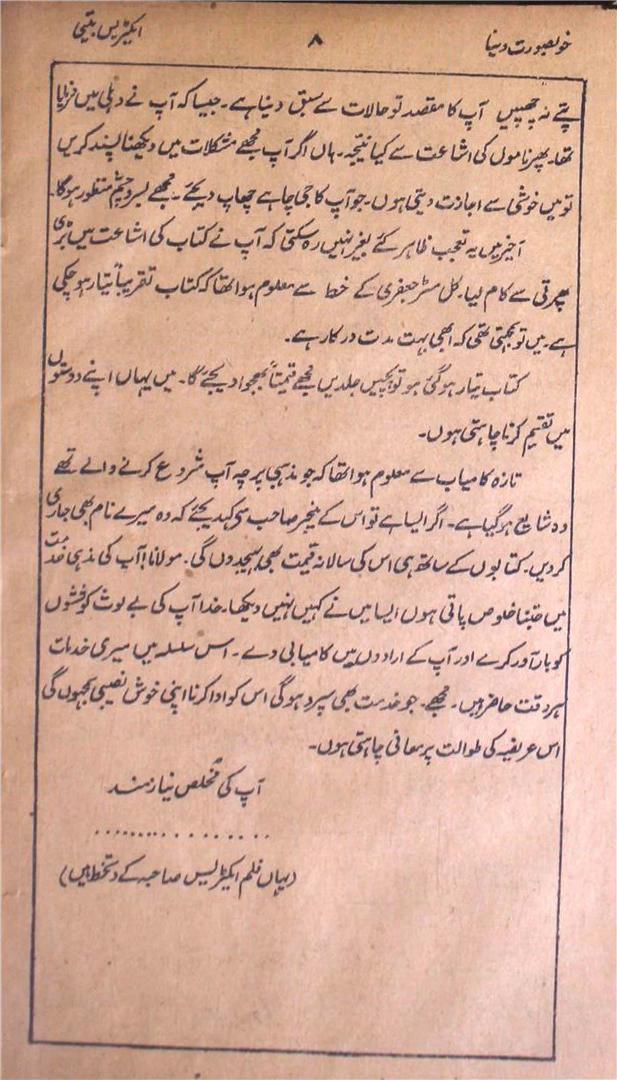 خوبصورت دنیا ۸ ایکٹریس بیتی
پتے نہ چھپیں آپ کا مقصد تو حالات سے سبق دینا ہے۔ جیسا کہ آپ نے دہلی میں فرمایا
تھا۔ پھر ناموں کی اشاعت سے کیا نتیجہ۔ ہاں اگر آپ مجھے مشکلات میں دیکھنا پسند کریں
تو میں خوشی سے اجازت دیتی ہوں۔ جو آپ کا جی چاہے چھاپ دیجئے۔ مجھے بسر و چشم منظور ہوگا۔
آخر میں یہ تعجب ظاہر کئے بغیر نہیں رہ سکتی کہ آپ نے کتاب کی اشاعت میں بڑی
پھرتی سے کام لیا۔ کل مسٹر جعفری کے خط سے معلوم ہوا تھا کہ کتاب تقریباً تیار ہو چکی
ہے۔ میں تو سمجھتی تھی کہ ابھی بہت مدت درکار ہے۔
کتاب تیار ہو گئی ہو تو پچیس جلدیں مجھے قیمتاً بھجوا دیجئے گا۔ میں یہاں اپنے دوستوں
میں تقسیم کرنا چاہتی ہوں۔
تازہ کامیاب سے معلوم ہوا تھا کہ جو مذہبی پرچہ آپ شروع کرنے والے تھے
وہ شایع ہو گیا ہے۔ اگر ایسا ہے تو اس کے منیجر صاحب سے کہدیجئے کہ وہ میرے نام بھی جاری
کر دیں۔ کتابوں کے ساتھ ہی اس کی سالانہ قیمت بھی بھیجدوں گی۔ مولانا! آپ کی مذہبی خدمت
میں جتنا خلوص پاتی ہوں ایسا میں نے کہیں نہیں دیکھا۔ خدا آپ کی بے لوث کوششوں
کو بار آور کرے اور آپ کے ارادوں میں کامیابی دے۔ اس سلسلہ میں میری خدمات
ہر وقت حاضر ہیں۔ مجھے۔ جو خدمت بھی سپرد ہوگی اس کو ادا کرنا اپنی خوش نصیبی سمجھوں گی
اس عریضہ کی طوالت پر معافی چاہتی ہوں۔
آپ کی مخلص نیازمند
..................
(یہاں فلم ایکٹریس صاحبہ کے دستخط ہیں)